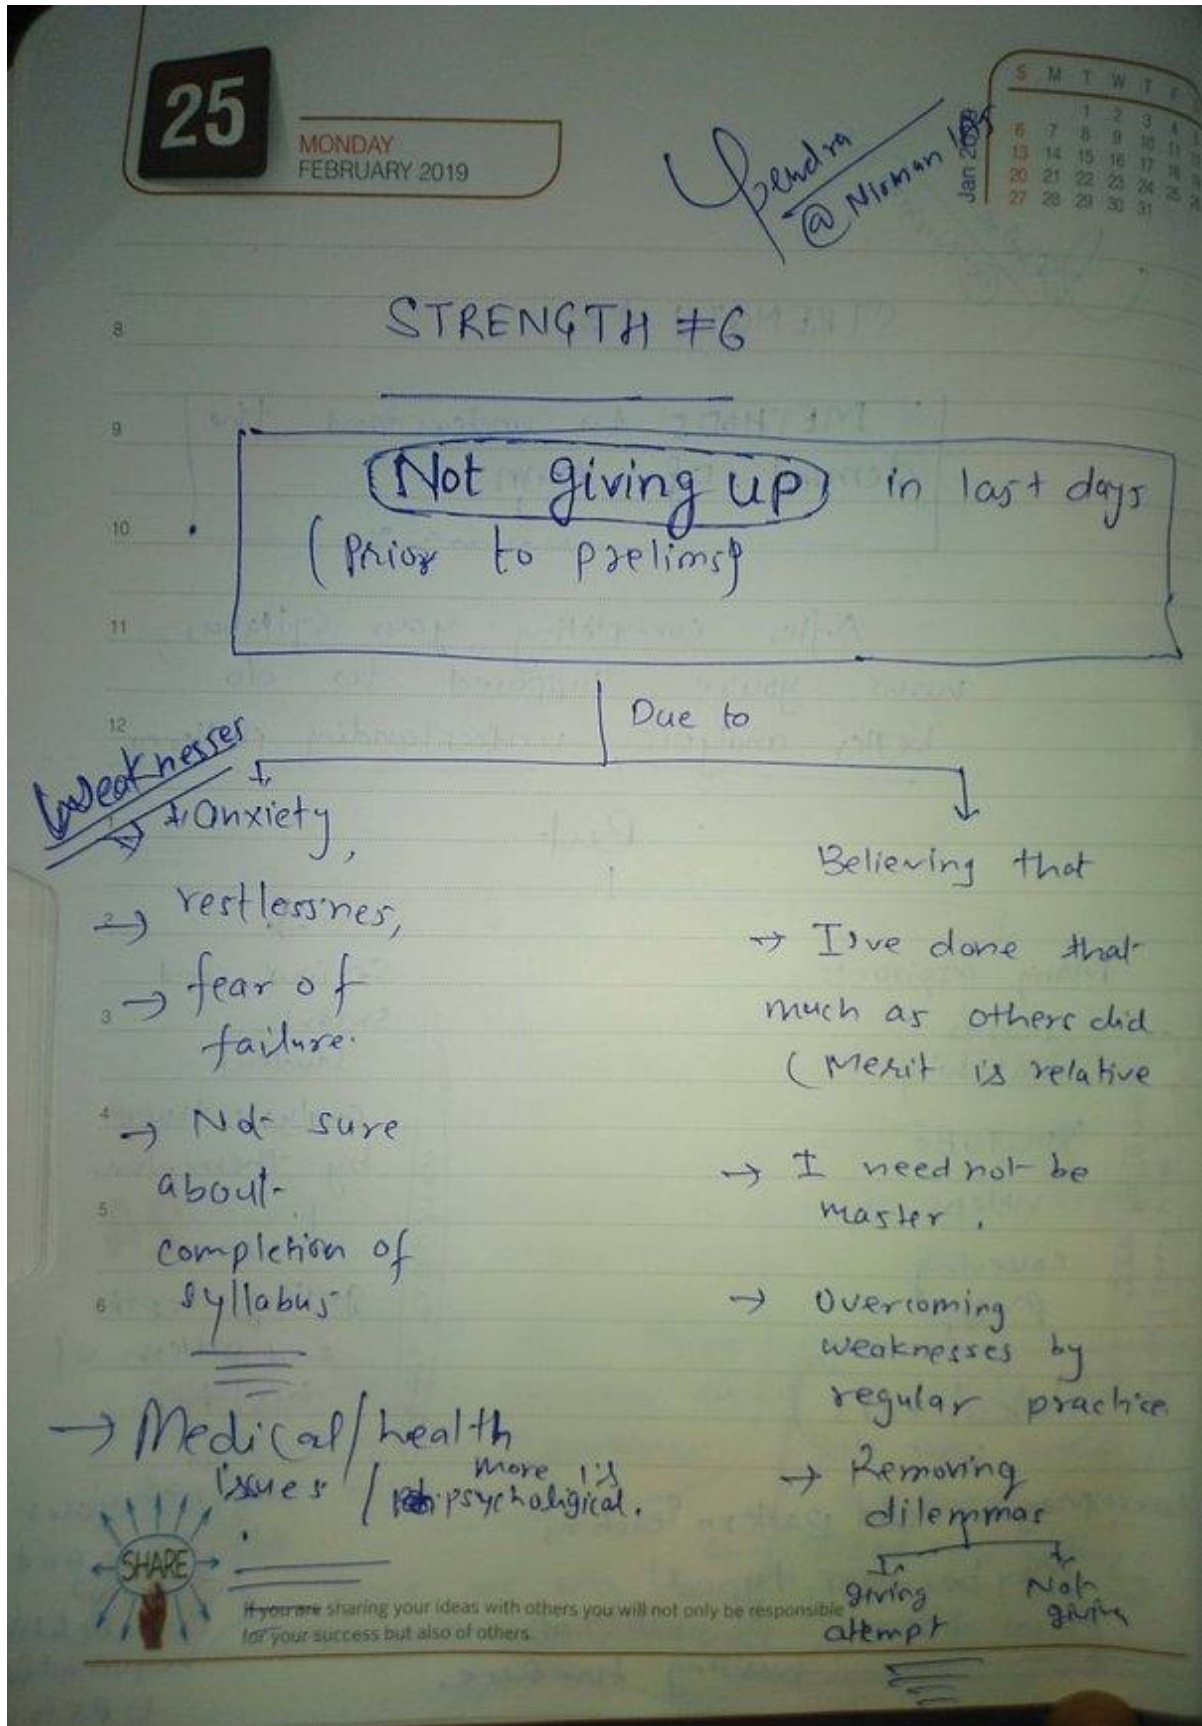 25
MONDAY
FEBRUARY 2019
@ Nirman IAS
Jan 2019
S M T W T F
1 2 3 4
6 7 8 9 10 11
13 14 15 16 17 18
20 21 22 23 24 25
27 28 29 30 31
STRENGTH #6
Not giving up in last days
(Prior to prelims)
Due to
Weaknesses
anxiety,
→ restlessnes,
→ fear of
failure.
→ Not sure
about
completion of
syllabus
→ Medical/health
issues / more is
psychological.
Believing that
→ I've done that
much as others did
(Merit is relative
→ I need not be
master.
→ Overcoming
weaknesses by
regular practice
→ Removing
dilemmas
giving
attempt
Not
giving
8
9
10
11
12
2
3
4
5
6
SHARE
If you are sharing your ideas with others you will not only be responsible
for your success but also of others.